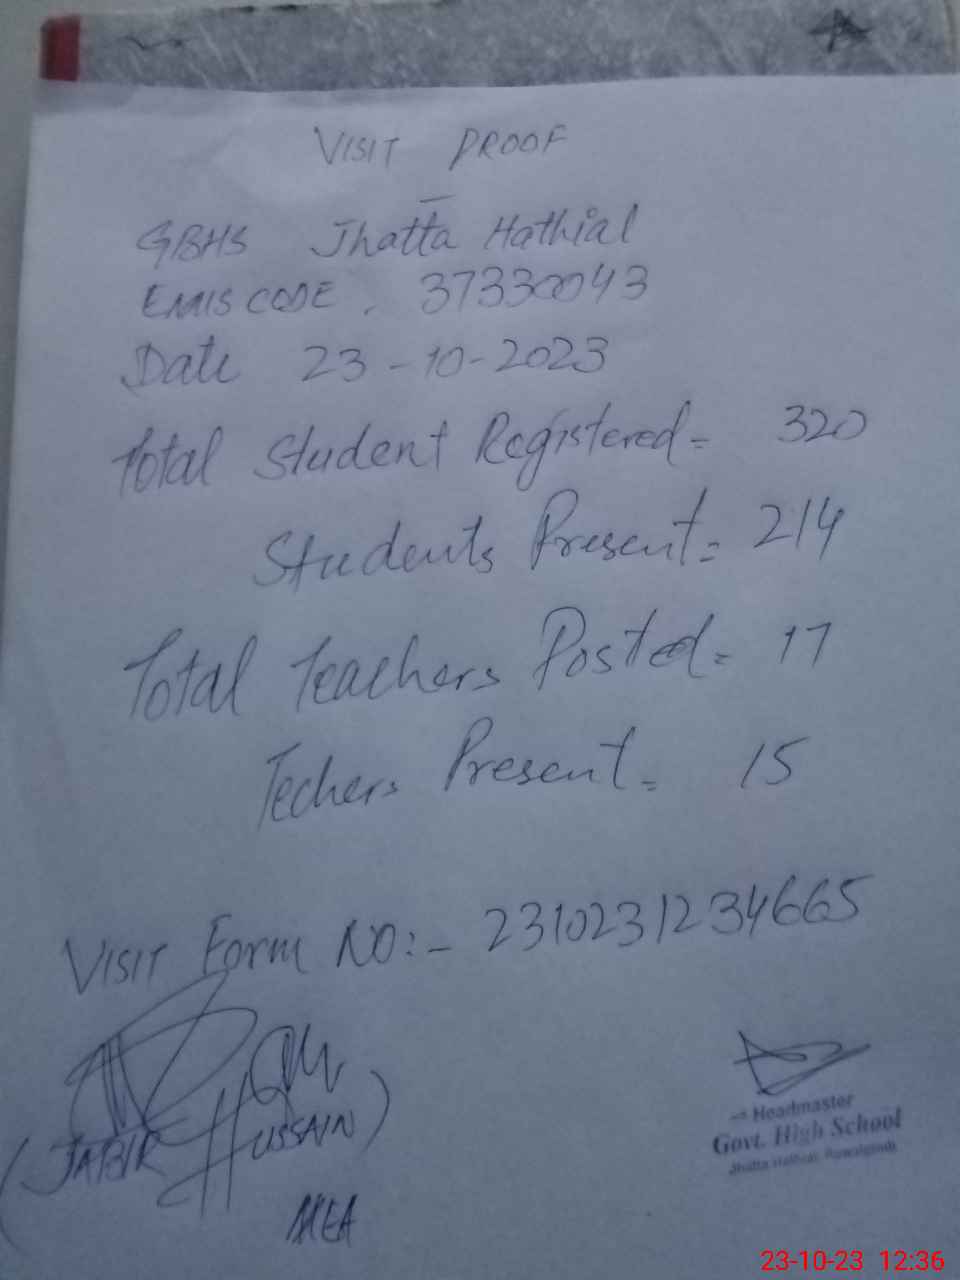 VISIT PROOF
GBHS Jhatta Hathial
EMIS CODE. 37330043
Date 23-10-2023
Total Student Registered= 320
Students Present= 214
Total Teachers Posted= 17
Techers Present= 15
VISIT Form NO:- 2310231234665
(JABIR HUSSAIN)
Headmaster
Govt. High School
Jhatta Hathial, Rawalpindi
23-10-23 12:36